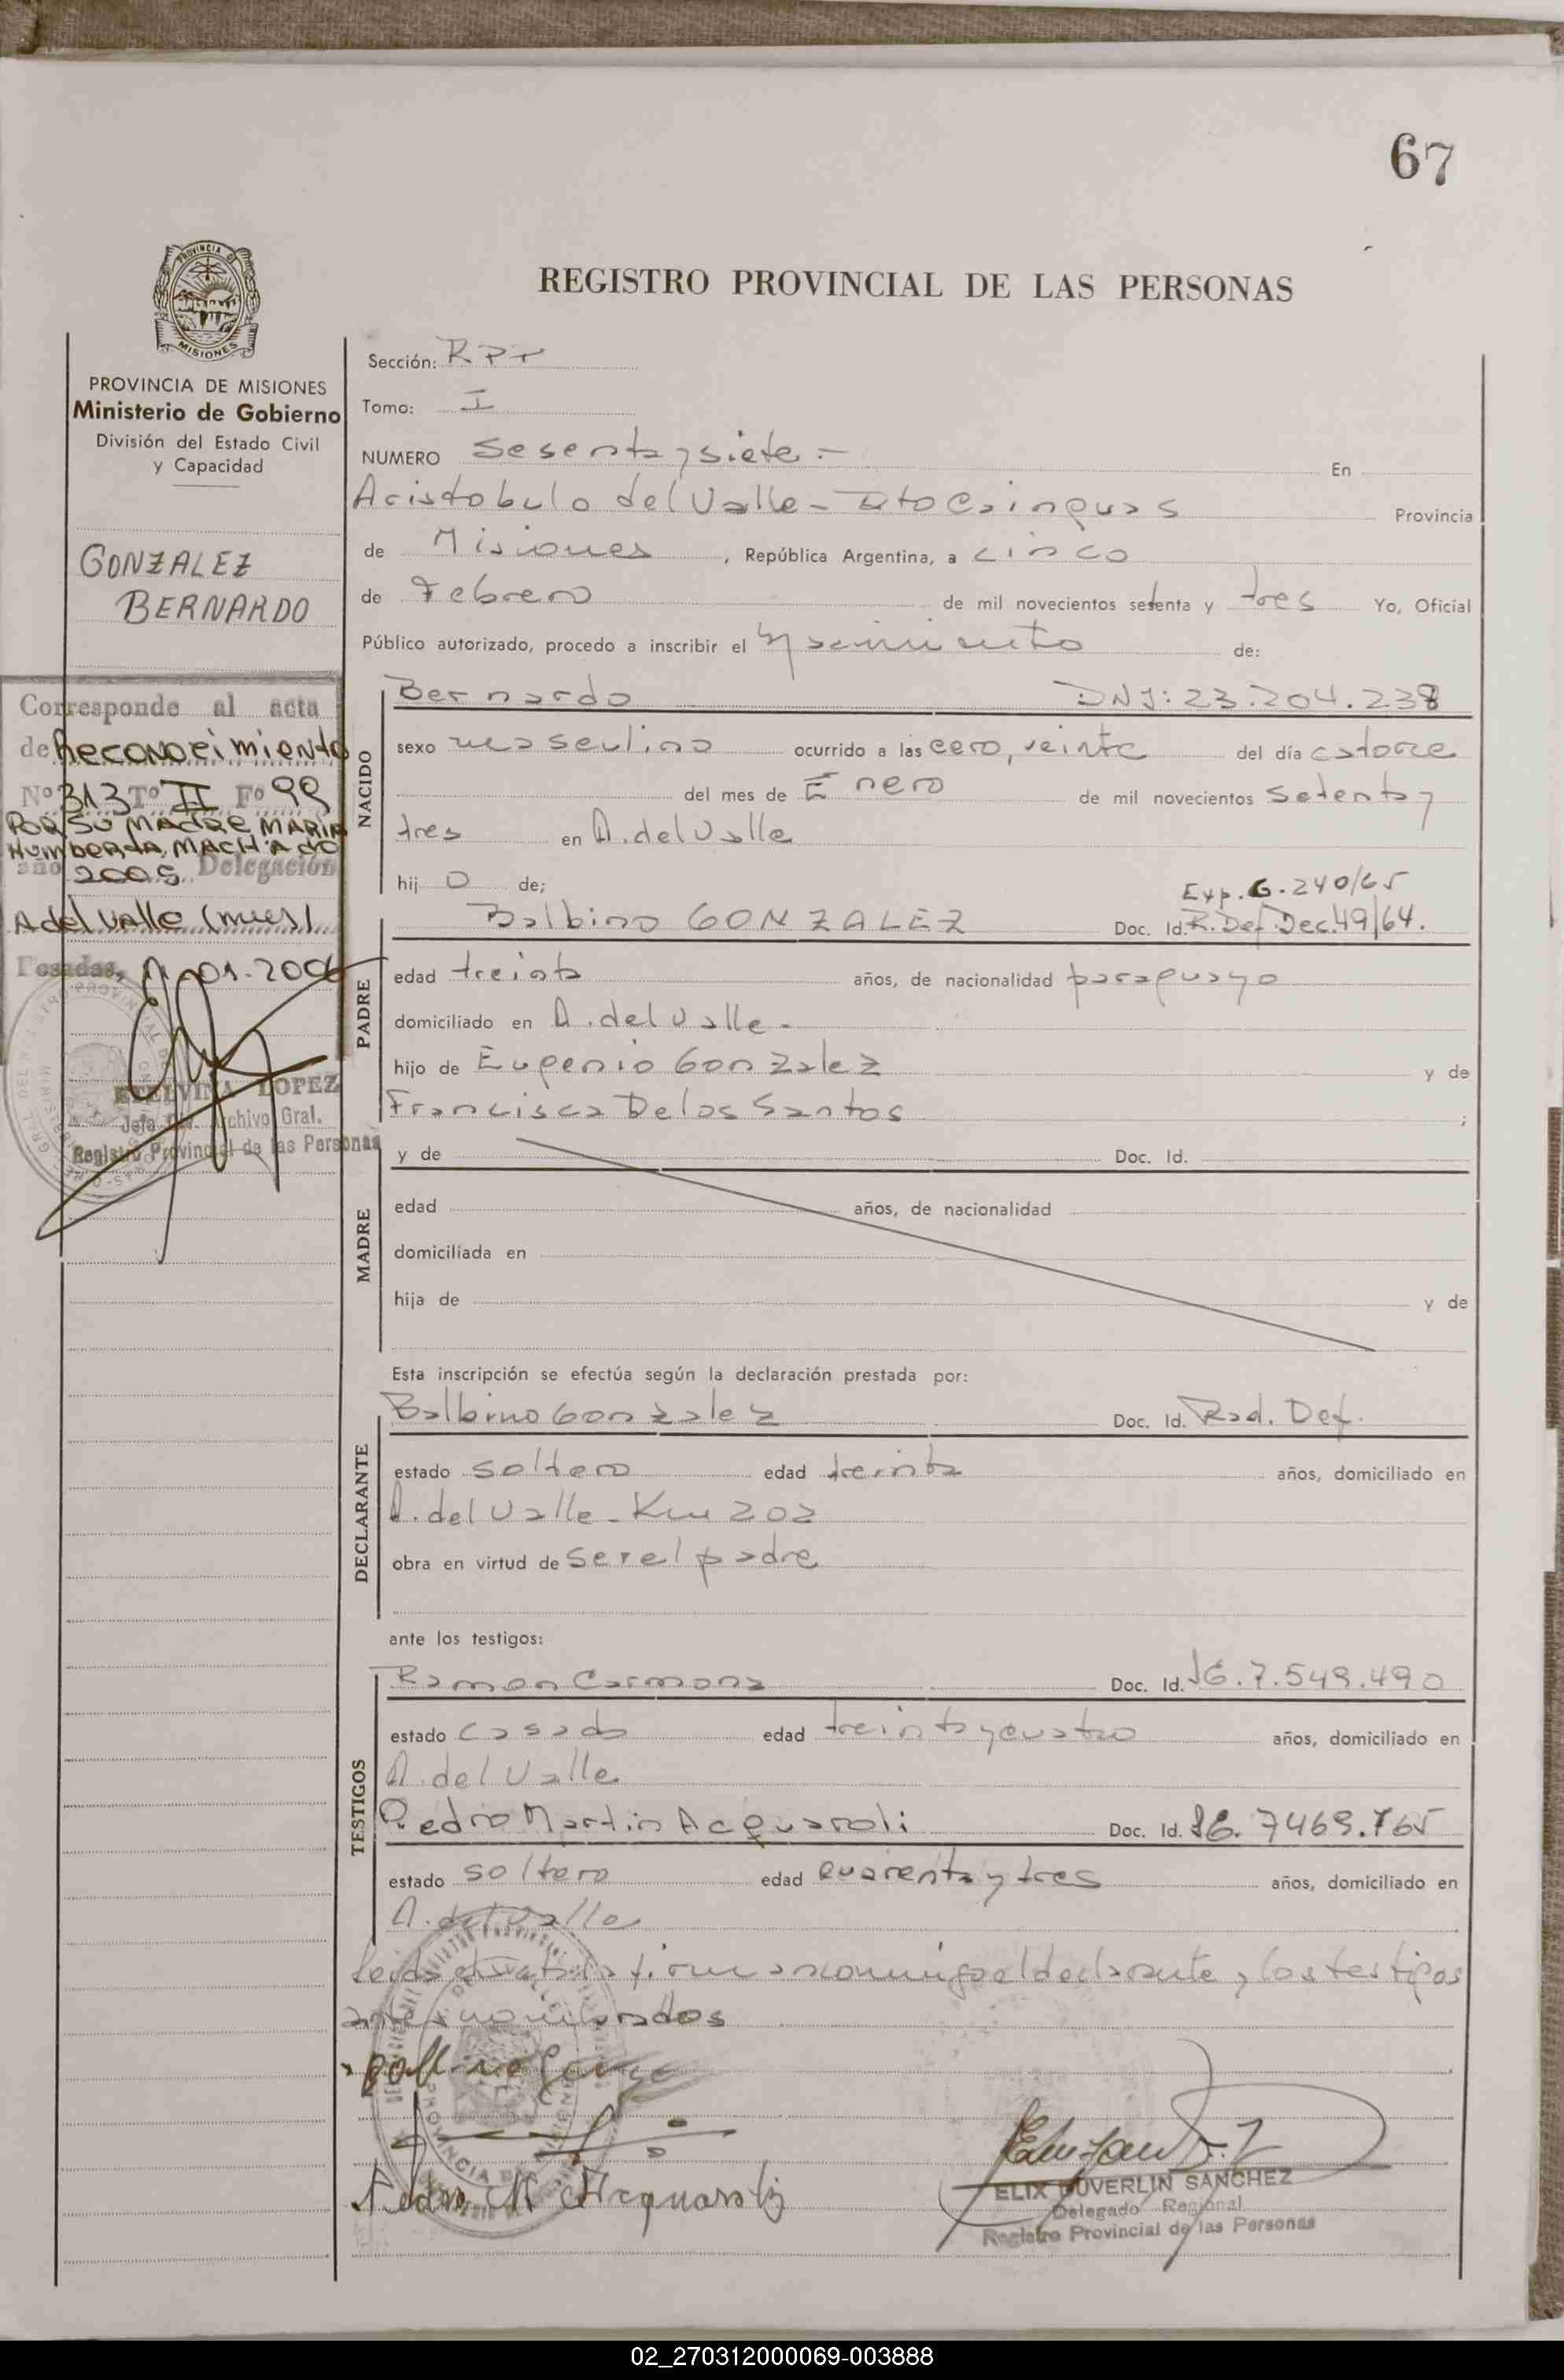 67
REGISTRO PROVINCIAL DE LAS PERSONAS
PROVINCIA DE
MISIONES
PROVINCIA DE MISIONES
Ministerio de Gobierno
División del Estado Civil
y Capacidad
GONZALEZ
BERNARDO
Corresponde al acta
de Reconocimiento
Nº 313 Tº II Fº 99
POR SU MADRE MARIA
HUMBERTA MACHADO
año 2005 Delegación
A del valle (mnes)
Posadas, 01-2006
LOPEZ
Jefa Div. Archivo Gral.
Registro Provincial de las Personas
Sección: RPT
Tomo: I
NUMERO Sesenta y siete.- En
Aristobulo del Valle - Dto Cainguas Provincia
de Misiones, República Argentina, a cinco
de Febrero de mil novecientos setenta y tres Yo, Oficial
Público autorizado, procedo a inscribir el Nacimiento de:
NACIDO
Bernardo DNI: 23.204.238
sexo masculino ocurrido a las cero, veinte del día catorce
del mes de Enero de mil novecientos Setenta y
tres en A. del Valle
hij o de;
Exp. G. 240/65
PADRE
Balbino GONZALEZ Doc. Id. R. Def. Dec. 49/64.
edad treinta años, de nacionalidad paraguayo
domiciliado en A. del Valle.
hijo de Eugenio Gonzalez y de
Francisca De los Santos ;
MADRE
y de Doc. Id.
edad años, de nacionalidad
domiciliada en
hija de y de
Esta inscripción se efectúa según la declaración prestada por:
DECLARANTE
Balbino Gonzalez Doc. Id. Rad. Def.
estado soltero edad treinta años, domiciliado en
A. del Valle - Km 202
obra en virtud de ser el padre
ante los testigos:
TESTIGOS
Ramon Carmona Doc. Id. 7.549.490
estado casado edad treinta y cuatro años, domiciliado en
A. del Valle
Pedro Martin Acquaroli Doc. Id. 7469.765
estado soltero edad cuarenta y tres años, domiciliado en
A. del Valle
Leida el acta la firman conmigo el declarante y los testigos
antes nombrados
Pedro M Acquaroli
ELIX DUVERLIN SANCHEZ
Delegado Regional
Registro Provincial de las Personas
02_270312000069-003888